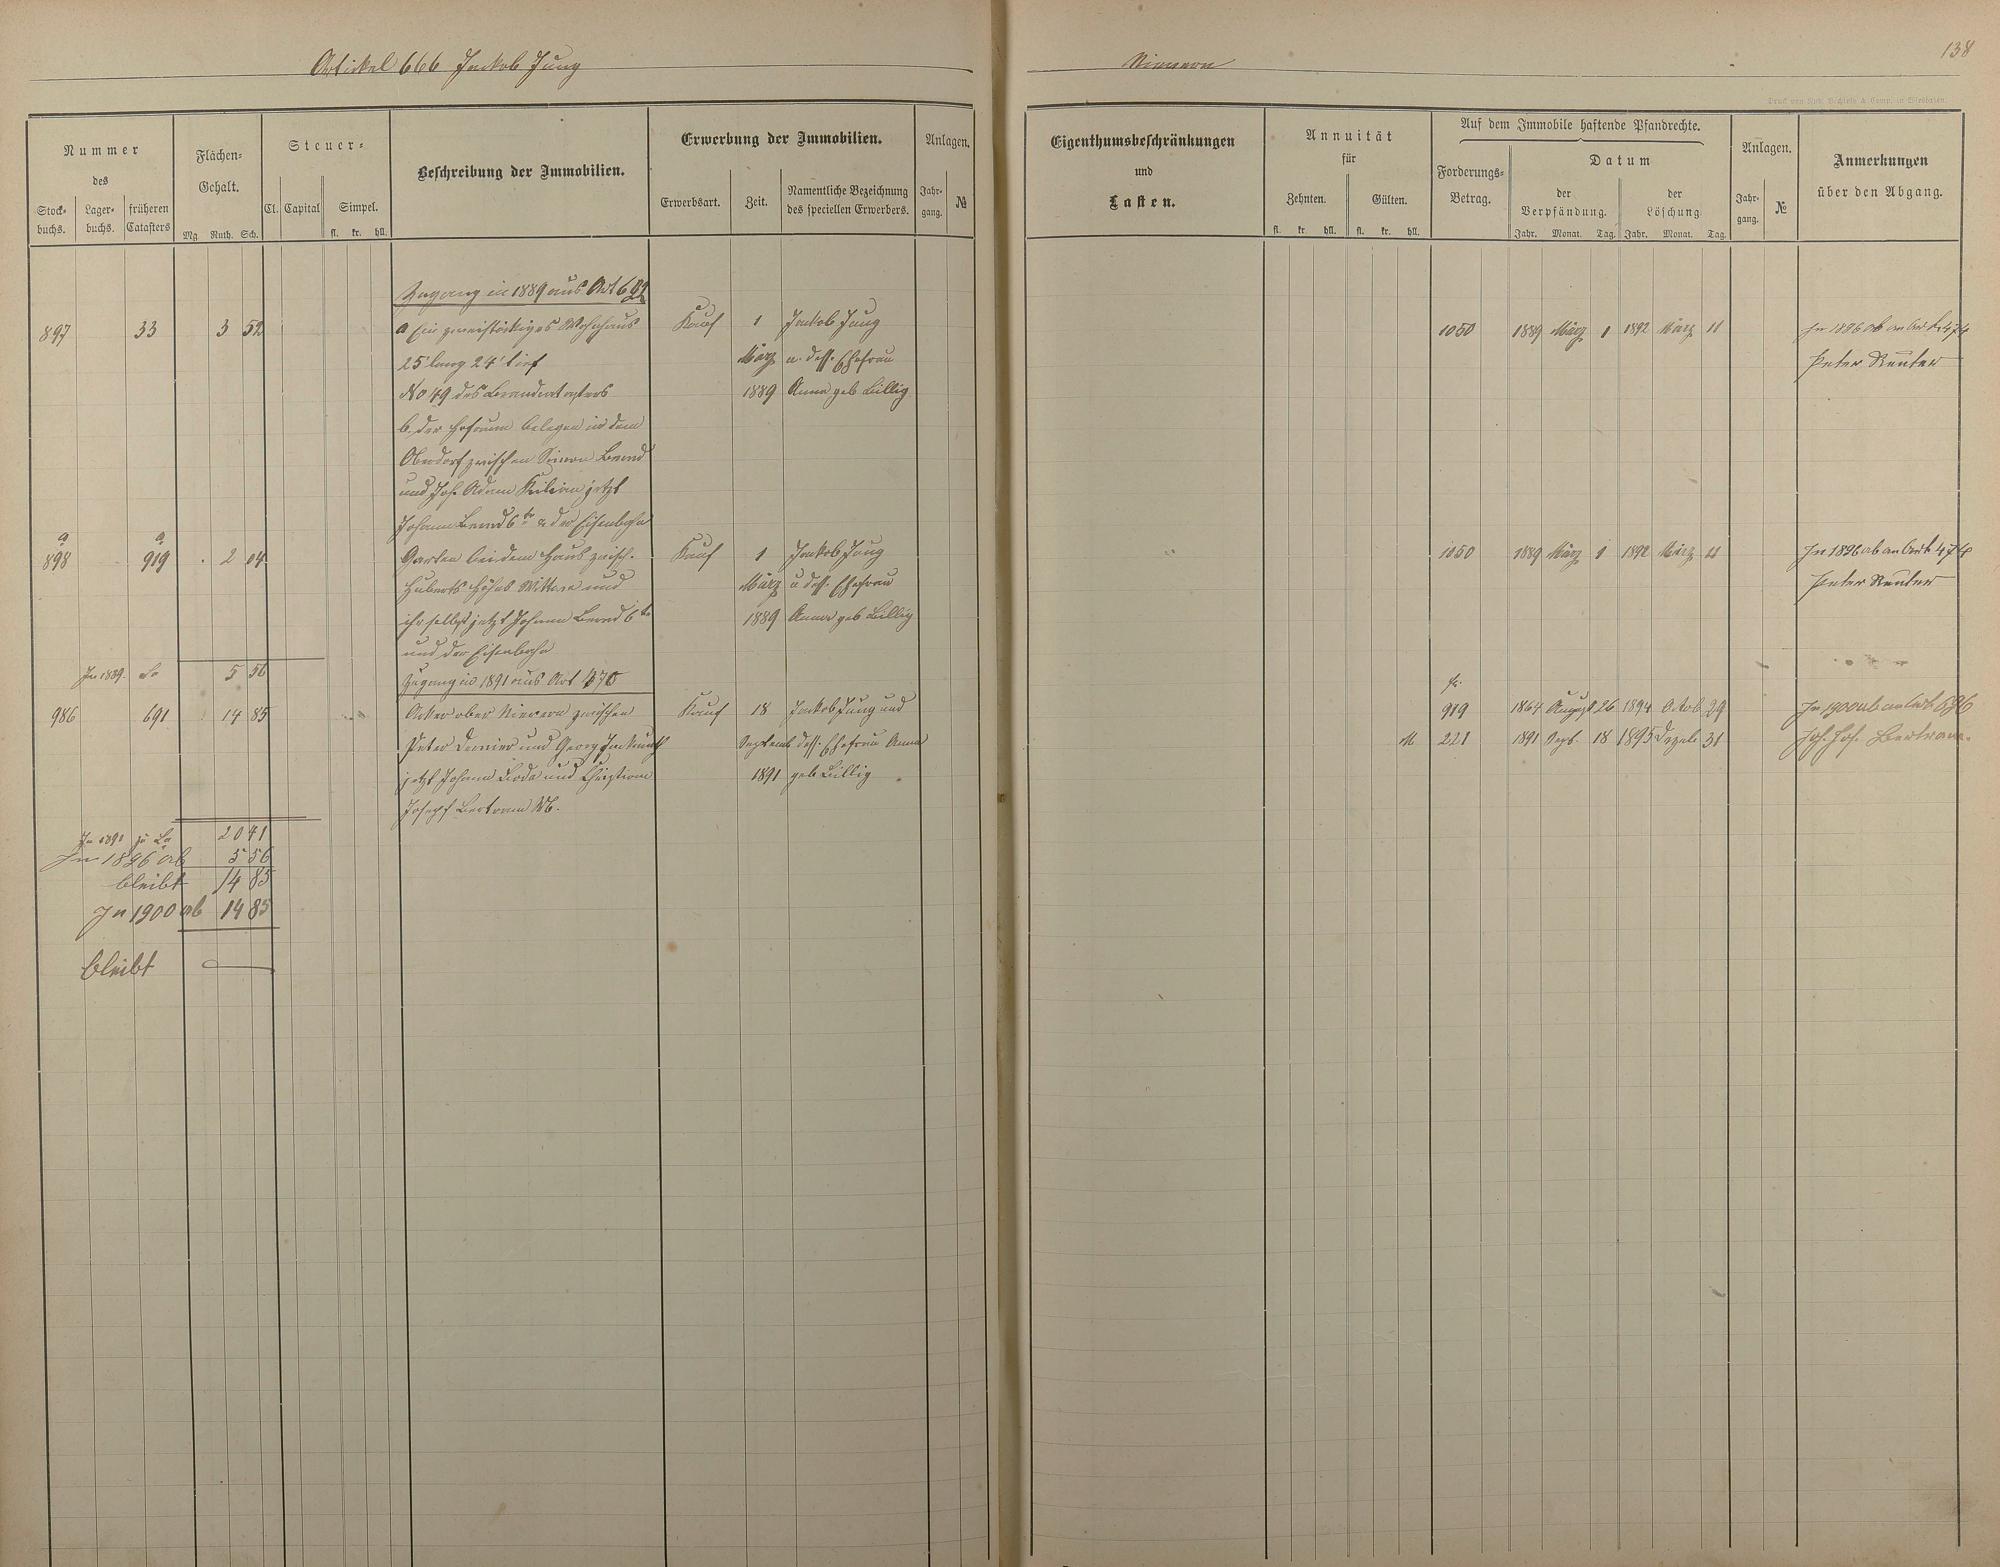 Artickel 666 Jackob Jung
Nievern
138
Druck von Rud. Bechtold & Comp. in Wiesbaden.
Nummer
des
Stock-
buchs.
Lager-
buchs.
früheren
Catasters
Flächen-
Gehalt.
Mg. Ruth. Sch.
Steuer-
Cl. Capital Simpel.
fl. kr. hll.
Beschreibung der Immobilien.
Erwerbung der Immobilien.
Erwerbsart. Zeit.
Namentliche Bezeichnung
des speciellen Erwerbers.
Anlagen.
Jahr-
gang.
№
Eigenthumsbeschränkungen
und
Lasten.
Annuität
für
Zehnten. Gülten.
fl. kr. hll. fl. kr. hll.
Auf dem Immobile haftende Pfandrechte.
Forderungs-
Betrag.
Datum
der
Verpfändung.
der
Löschung.
Jahr. Monat. Tag. Jahr. Monat. Tag.
Anlagen.
Jahr-
gang.
№
Anmerkungen
über den Abgang.
Zugang in 1889 aus Art
897 33 3 52 a Ein zweistöckiges Wohnhaus Kauf 1 Jackob Jung 1050 1889 März 1 1892 März 11 In 1896 ab an Artk 474
25' lang 24' tief März u. dess. Ehefrau Peter Reuter
No 49 des Brandcatasters 1889 Anna geb Billig
b. der Hofraum belegen in dem
Oberdorf zwischen Simon Bernd
und Joh. Adam Kilian jetzt
Johann Bernd 6ter & der Eisenbahn
a a
898 919 2 04 Garten bei dem Haus zwisch. Kauf 1 Jackob Jung 1050 1889 März 1 1892 März 11 In 1896 ab an Artk 474
Huberts Wittwe und März u dess. Ehefrau Peter Reuter
ihr selbst jetzt Johann Bernd 6ter 1889 Anna geb Billig
und der Eisenbahn
In 1889. Sa 5 56 Zugang in 1891 aus Art 370 fl.
986 691 14 85 Acker ober Nievern zwischen Kauf 18 Jackob Jung und 919 1864 August 26 1894 Octob 29 In 1900 ab an Artk 696
Peter und Georg Septemb dess. Ehefrau Anna M 221 1891 Sept. 18 1895 Dezeb. 31 Joh. Jos. Bertram.
jetzt Johann und Christian 1891 geb Billig
Josepf Bertram W.
In 1891 zu Sa 20 41
In 1896 ab 5 56
bleibt 14 85
In 1900 ab 14 85
bleibt